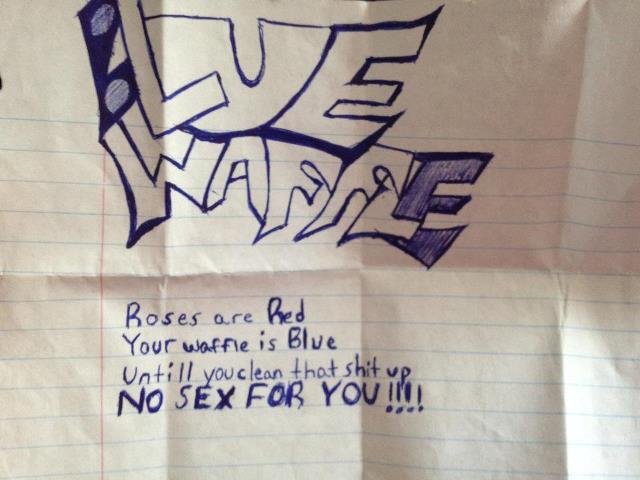 BLUE
WAFFLE
Roses are Red
Your waffle is Blue
Untill you clean that shit up
NO SEX FOR YOU!!!!